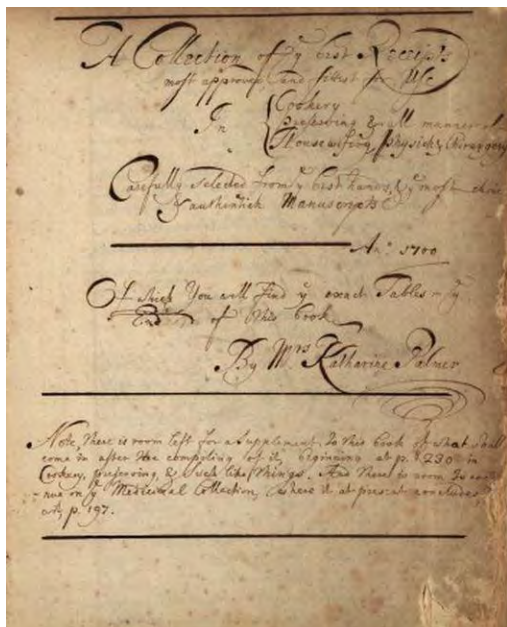 A Collection of ye best Receipts
most approved, and fittest for Use
In
Cookery
preserving & all manner of
Housewifery, Physick, Chirurgery
Carefully Selected from ye best hands, & ye most choice
& authentick Manuscripts
Ano: 1700
Of which You will find ye exact Tables in ye
End of this book
By Mrs Katharine Palmer
Note, there is room left for a Supplement to this book of what shall
come in after the compleating of it, begining at p. 230 in
Cookery, preserving, & such like things. And there is room to conti
-nue on ye Medicinal Collection, where it at present concludes
at p. 197.